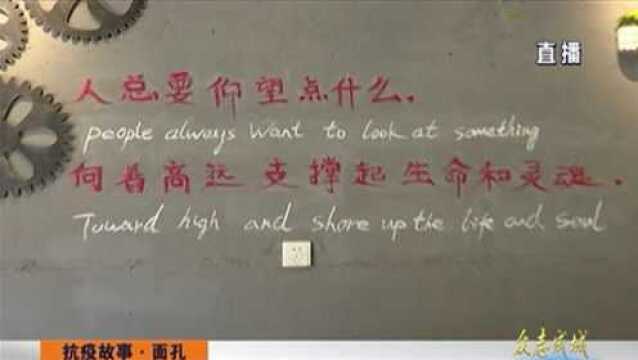 直播
人总要仰望点什么.
people always want to look at something
向着高远 支撑起生命和灵魂.
Toward high and shore up the life and soul
抗疫故事·面孔
众志成城